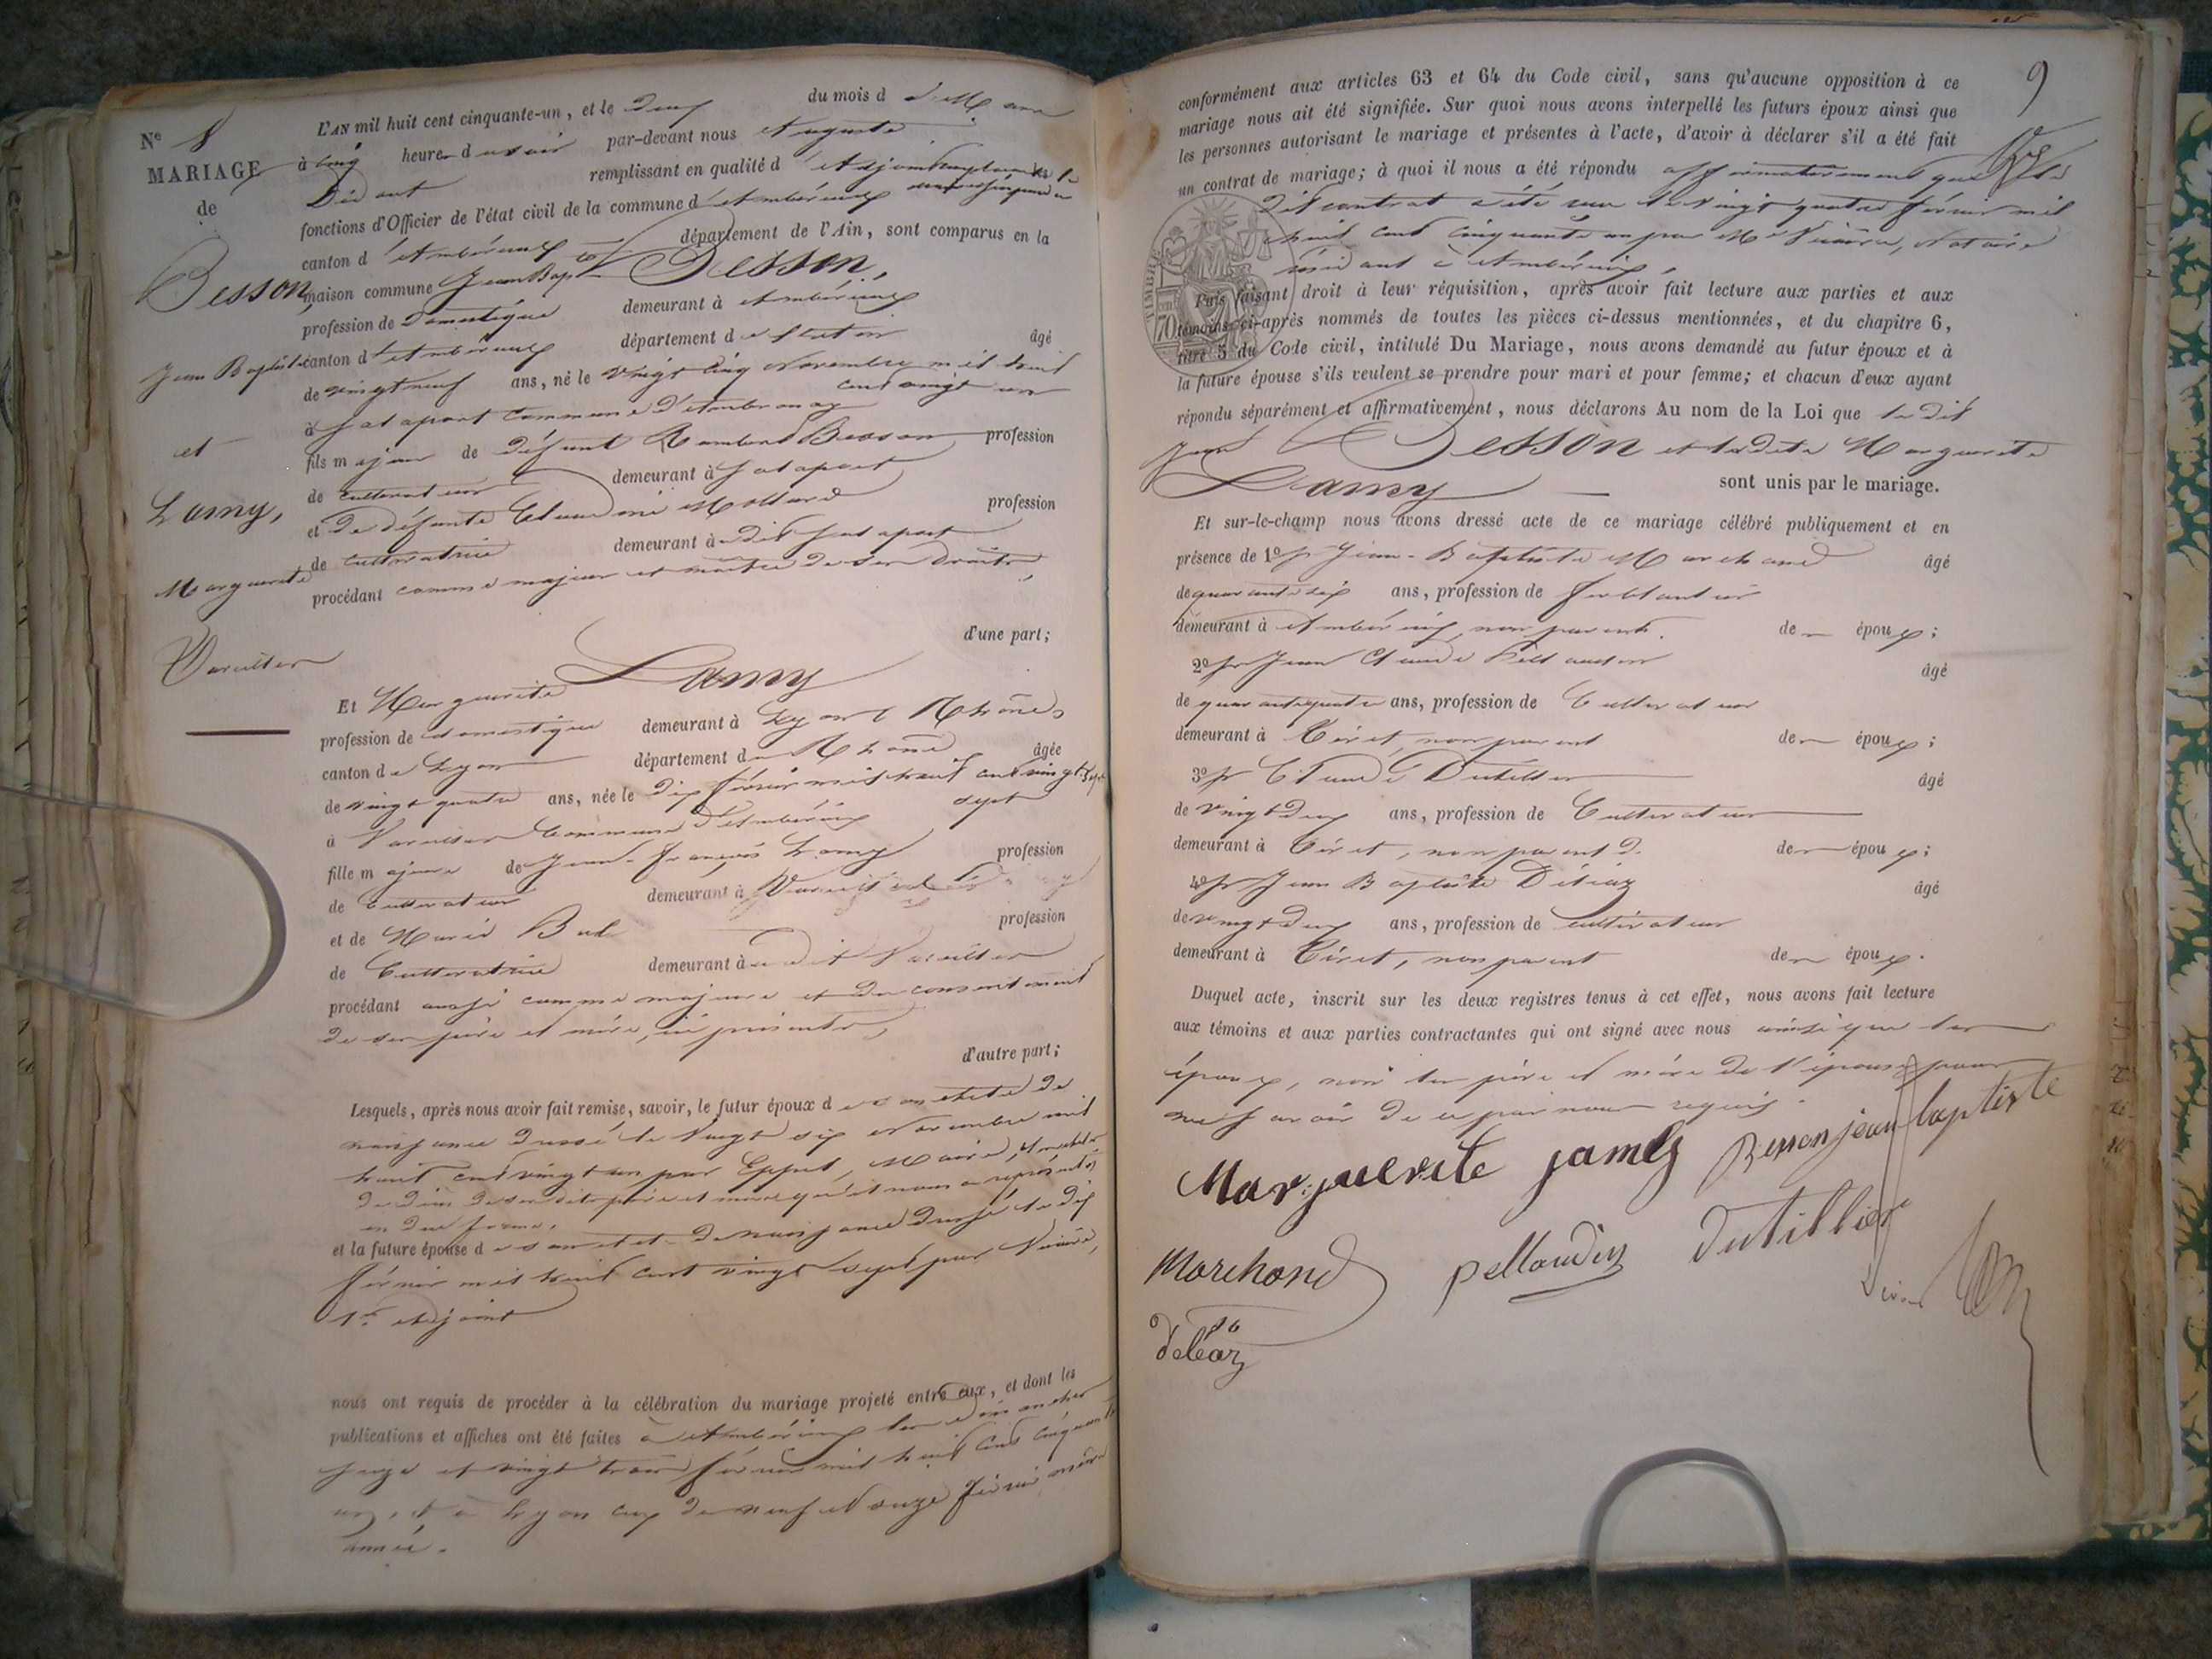 Ne 8
MARIAGE
de
Besson,
Jean Baptiste
et
Lamy,
Marguerite
Vareilles
L'AN mil huit cent cinquante-un, et le deux du mois de Mars
à cinq heures du soir par-devant nous Auguste
Dévant remplissant en qualité d'Adjoint remplaçant le
fonctions d'Officier de l'état civil de la commune d'Ambérieux
canton d'Ambérieux département de l'Ain, sont comparus en la
maison commune Jean Bapte Besson,
profession de Domestique demeurant à Ambérieux
canton d'Ambérieux département de l'Ain âgé
de vingt neuf ans, né le vingt cinq Novembre mil huit
cent vingt un
à commune d'Ambronay
fils majeur de défunt Rambert Besson profession
de cultivateur demeurant à
et de défunte Claudine Mollard profession
de cultivatrice demeurant à dit
procédant comme majeur et maître de ses droits,
d'une part;
Et Marguerite Lamy
profession de domestique demeurant à Lyon (Rhône)
canton de Lyon département du Rhône âgée
de vingt quatre ans, née le dix février mil huit cent vingt sept
à Vareilles Commune d'Ambérieux
fille majeure de Jean-François Lamy profession
de Cultivateur demeurant à
et de Marie profession
de Cultivatrice demeurant à dit Vareilles
procédant aussi comme majeure et du consentement
de ses père et mère, ici présents,
d'autre part;
Lesquels, après nous avoir fait remise, savoir, le futur époux de son acte de
naissance dressé le vingt six Novembre mil
huit cent vingt un par Maire, et
de décès de ses dits père et mère qu'il nous a représentés
en due forme.
et la future épouse de son acte de naissance dressé le dix
février mil huit cent vingt sept par
1er adjoint
nous ont requis de procéder à la célébration du mariage projeté entre eux, et dont les
publications et affiches ont été faites à Ambérieux les dimanches
seize et vingt trois février mil huit cent cinquante
un, et à Lyon ceux de neuf et seize février même
année.
9
conformément aux articles 63 et 64 du Code civil, sans qu'aucune opposition à ce
mariage nous ait été signifiée. Sur quoi nous avons interpellé les futurs époux ainsi que
les personnes autorisant le mariage et présentes à l'acte, d'avoir à déclarer s'il a été fait
un contrat de mariage; à quoi il nous a été répondu affirmativement que le
dit contrat a été reçu le vingt quatre février mil
huit cent cinquante un par Me Notaire
résidant à Ambérieux,
TIMBRE
70
Puis faisant droit à leur réquisition, après avoir fait lecture aux parties et aux
témoins ci-après nommés de toutes les pièces ci-dessus mentionnées, et du chapitre 6,
titre 5 du Code civil, intitulé Du Mariage, nous avons demandé au futur époux et à
la future épouse s'ils veulent se prendre pour mari et pour femme; et chacun d'eux ayant
répondu séparément et affirmativement, nous déclarons Au nom de la Loi que le dit
Jean Besson et ladite Marguerite
Lamy sont unis par le mariage.
Et sur-le-champ nous avons dressé acte de ce mariage célébré publiquement et en
présence de 1º Jean-Baptiste Marchand âgé
de quarante six ans, profession de ferblantier
demeurant à Ambérieux, non parent de époux;
2º Jean Claude Pellaudin âgé
de quarante quatre ans, profession de Cultivateur
demeurant à Tiret, non parent de époux;
3º Claude Dutillier âgé
de vingt deux ans, profession de Cultivateur
demeurant à Tiret, non parent de époux;
4º Jean Baptiste Déléaz âgé
de vingt deux ans, profession de cultivateur
demeurant à Tiret, non parent de époux.
Duquel acte, inscrit sur les deux registres tenus à cet effet, nous avons fait lecture
aux témoins et aux parties contractantes qui ont signé avec nous ainsi que les
époux, non les père et mère de l'épouse pour
ne savoir de ce par nous requis.
Marguerite jamey Besson jean baptiste
Marchand pellaudin dutillier
déléaz